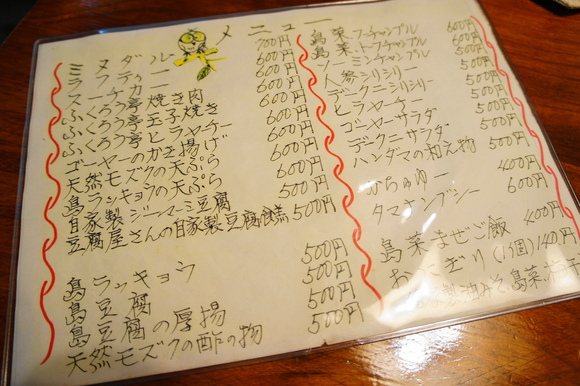 メニュー
ミヌダル 700円
ラフティー 600円
スーチカー 600円
ふくろう亭焼き肉 600円
ふくろう亭玉子焼き 600円
ふくろう亭ヒラヤーチー 600円
ゴーヤーのかき揚げ 600円
天然モズクの天ぷら 600円
島ラッキョウの天ぷら 600円
自家製ジーマミ豆腐 500円
豆腐屋さんの自家製豆腐餻 500円
島ラッキョウ 500円
島豆腐 500円
島豆腐の厚揚 500円
天然モズクの酢の物 500円
島菜フーチャンプル 600円
島菜トーフチャンプル 600円
ソーミンチャンプル 600円
人参シリシリー 500円
デークニシリシリー 500円
ヒラヤーチー 500円
ゴーヤーサラダ 500円
デークニサラダ 500円
ハンダマの和え物 500円
かちゅゆー 400円
タマナンプシー 600円
島菜まぜご飯 400円
おにぎり(1個) 140円